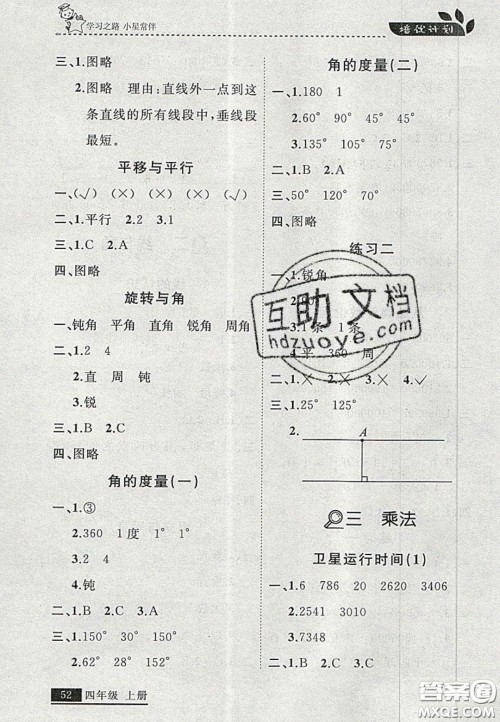 学习之路 小星常伴
培优计划
三、1.图略
2.图略 理由:直线外一点到这
条直线的所有线段中,垂线段
最短。
平移与平行
一、(√) (×) (×) (×) (√)
二、1.平行 2.2 3.1
三、1.C 2.A
四、图略
旋转与角
一、钝角 平角 直角 锐角 周角
二、1.2 4
2.直 周 钝
3.锐
三、1.B 2.C
四、图略
角的度量(一)
一、1.③
2.360 1度 1° 1°
3.2 4
4.钝
二、1.B 2.C 3.A
三、1.150° 30° 150°
2.62° 90° 152°
52 四年级 上册
角的度量(二)
一、1.180 1
2.60° 90° 45° 45°
3.135° 105° 75°
二、1.B 2.A
三、50° 120° 70°
四、图略
练习二
一、1.锐角
3.1条 1条
4.平 360 周
二、1.× 2.× 3.× 4.√
三、1.25° 125°
2.
A
三 乘法
卫星运行时间(1)
一、1.6 786 20 2620 3406
2.2541 3010
互助文档
hdzuoye.com
答案圈
MXQE.COM